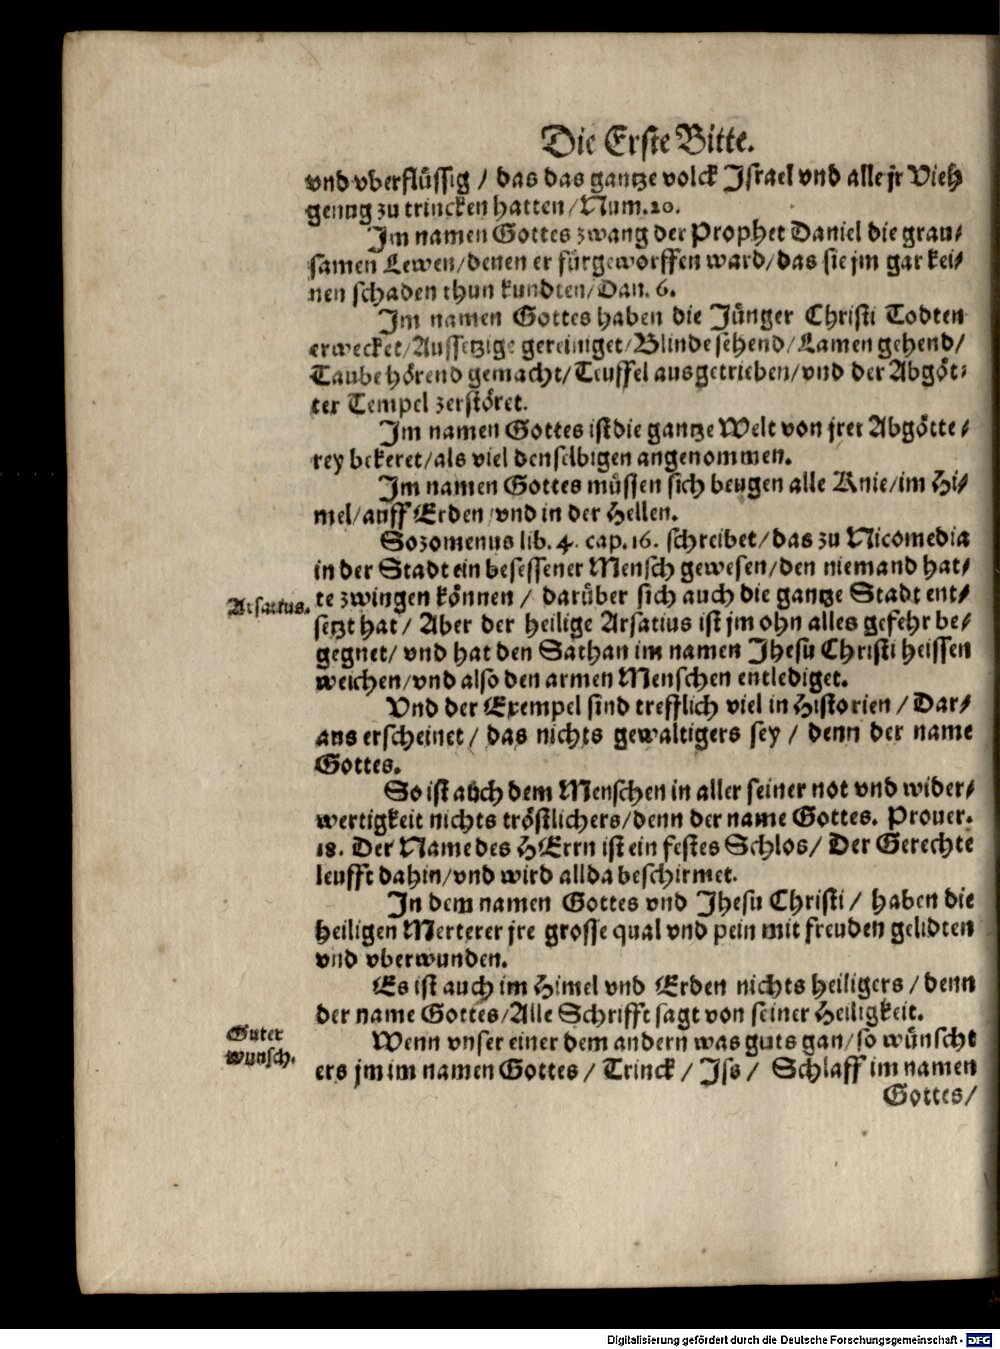 Die Erste Bitte.
vnd vberflüssig / das das gantze volck Israel vnd alle jr Vieh
genug zu trincken hatten/Num.20.
Im namen Gottes zwang der Prophet Daniel die grau-
samen Lewen/denen er fürgeworffen ward/das sie jm gar kei-
nen schaden thun kundten/Dan. 6.
Im namen Gottes haben die Jünger Christi Todten
erwecket/Aussetzige gereiniget/Blinde sehend/Lamen gehend/
Taube hörend gemacht/Teuffel ausgetrieben/vnd der Abgöt-
ter Tempel zerstöret.
Im namen Gottes ist die gantze Welt von jrer Abgötte-
rey bekeret/als viel denselbigen angenommen.
Im namen Gottes müssen sich beugen alle Knie/im Hi-
mel/auff Erden/vnd in der Hellen.
Sozomenus lib. 4. cap.16. schreibet/das zu Nicomedia
in der Stadt ein besessener Mensch gewesen/den niemand hat-
Arsatius.
te zwingen können / darüber sich auch die gantze Stadt ent-
setzt hat / Aber der heilige Arsatius ist jm ohn alles gefehr be-
gegnet/ vnd hat den Sathan im namen Jhesu Christi heissen
weichen/vnd also den armen Menschen entlediget.
Vnd der Exempel sind trefflich viel in Historien / Dar-
aus erscheinet / das nichts gewaltigers sey / denn der name
Gottes.
So ist auch dem Menschen in aller seiner not vnd wider-
wertigkeit nichts tröstlichers/denn der name Gottes. Prouer.
18. Der Name des HErrn ist ein festes Schlos/ Der Gerechte
leufft dahin/vnd wird allda beschirmet.
In dem namen Gottes vnd Jhesu Christi / haben die
heiligen Merterer jre grosse qual vnd pein mit freuden gelidten
vnd vberwunden.
Es ist auch im Himel vnd Erden nichts heiligers / denn
der name Gottes/Alle Schrifft sagt von seiner Heiligkeit.
Guter
wunsch.
Wenn vnser einer dem andern was guts gan/so wünscht
ers jm im namen Gottes / Trinck / Iss / Schlaff im namen
Gottes/
Digitalisierung gefördert durch die Deutsche Forschungsgemeinschaft - DFG